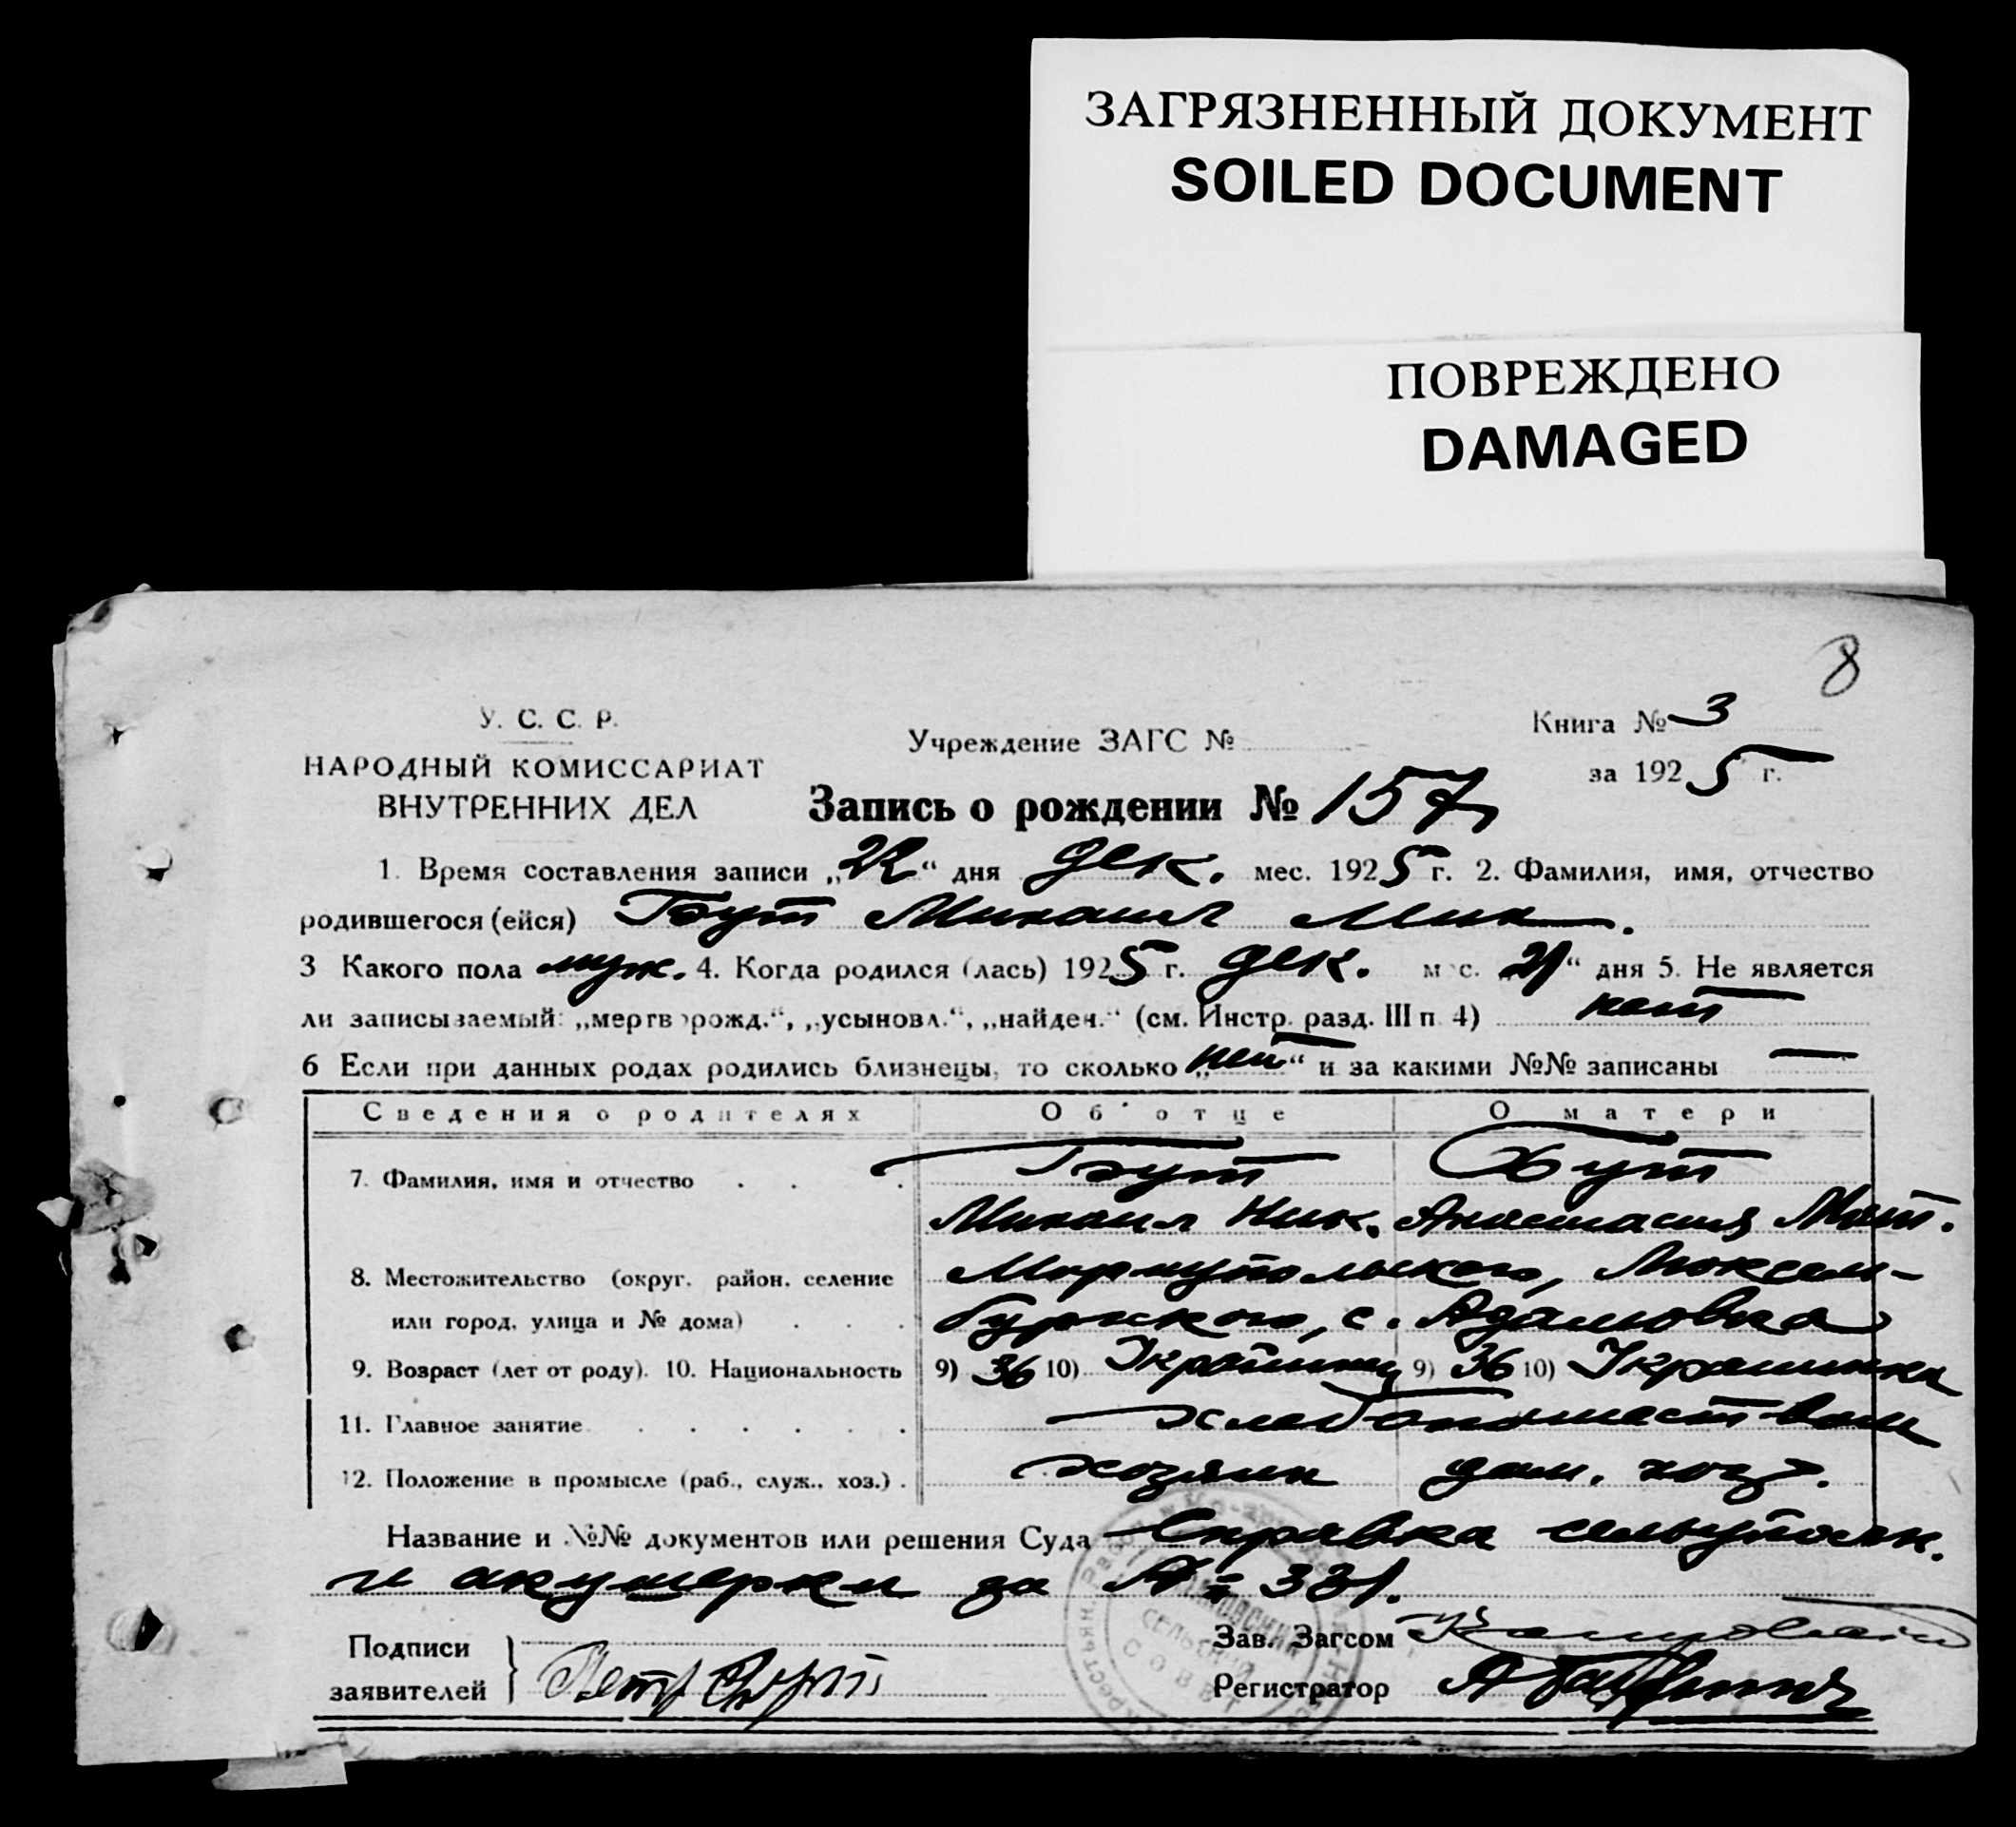 ЗАГРЯЗНЕННЫЙ ДОКУМЕНТ
SOILED DOCUMENT
ПОВРЕЖДЕНО
DAMAGED
8
У. С. С. Р.
НАРОДНЫЙ КОМИССАРИАТ
ВНУТРЕННИХ ДЕЛ
Учреждение ЗАГС №
Книга № 3
за 1925 г.
Запись о рождении № 157
1. Время составления записи „22“ дня дек. мес. 1925 г. 2. Фамилия, имя, отчество
родившегося (ейся) Бут Михаил Мих.
3 Какого пола муж. 4. Когда родился (лась) 1925 г. дек. мес. „21“ дня 5. Не является
ли записываемый: „мертворожд.“, „усыновл.“, „найден.“ (см. Инстр. разд. III п. 4) нет
6 Если при данных родах родились близнецы, то сколько „нет“ и за какими №№ записаны —
Сведения о родителях Об отце О матери
7. Фамилия, имя и отчество Бут Бут
Михаил Ник. Анастасия Мат.
8. Местожительство (округ, район, селение Мариупольского, Люксем-
или город, улица и № дома) бургского, с. Адамовка
9. Возраст (лет от роду). 10. Национальность 9) 36 10) Украинец 9) 36 10) Украинка
11. Главное занятие хлебопашеством
12. Положение в промысле (раб., служ., хоз.) хозяин дом. хоз.
Название и №№ документов или решения Суда Справка
и акушерки за № 331.
СЕЛЬСКИЙ
СОВЕТ
Подписи
заявителей Петр
Зав. Загсом
Регистратор